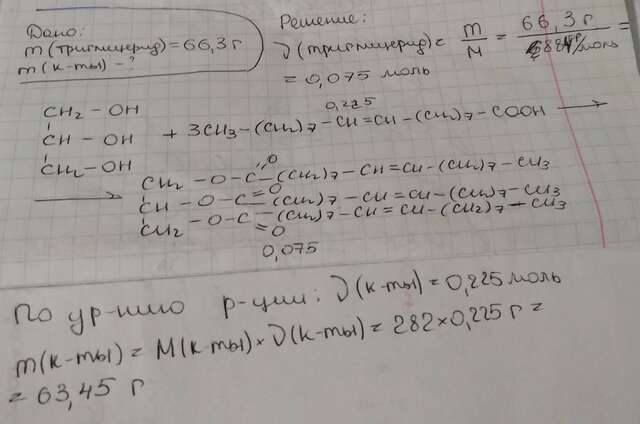 Дано:
m(триглицерид) = 66,3 г
m(к-ты) - ?
Решение:
ν(триглицерид) = m/M = 66,3 г / 884 г/моль =
= 0,075 моль
0,225
CH2 - OH
CH - OH + 3CH3-(CH2)7-CH=CH-(CH2)7-COOH →
CH2-OH
→ CH2 - O - C(=O)-(CH2)7-CH=CH-(CH2)7-CH3
CH - O - C(=O)-(CH2)7-CH=CH-(CH2)7-CH3
CH2 - O - C(=O)-(CH2)7-CH=CH-(CH2)7-CH3
0,075
По ур-нию р-ции: ν(к-ты) = 0,225 моль
m(к-ты) = M(к-ты) × ν(к-ты) = 282 × 0,225 г =
= 63,45 г